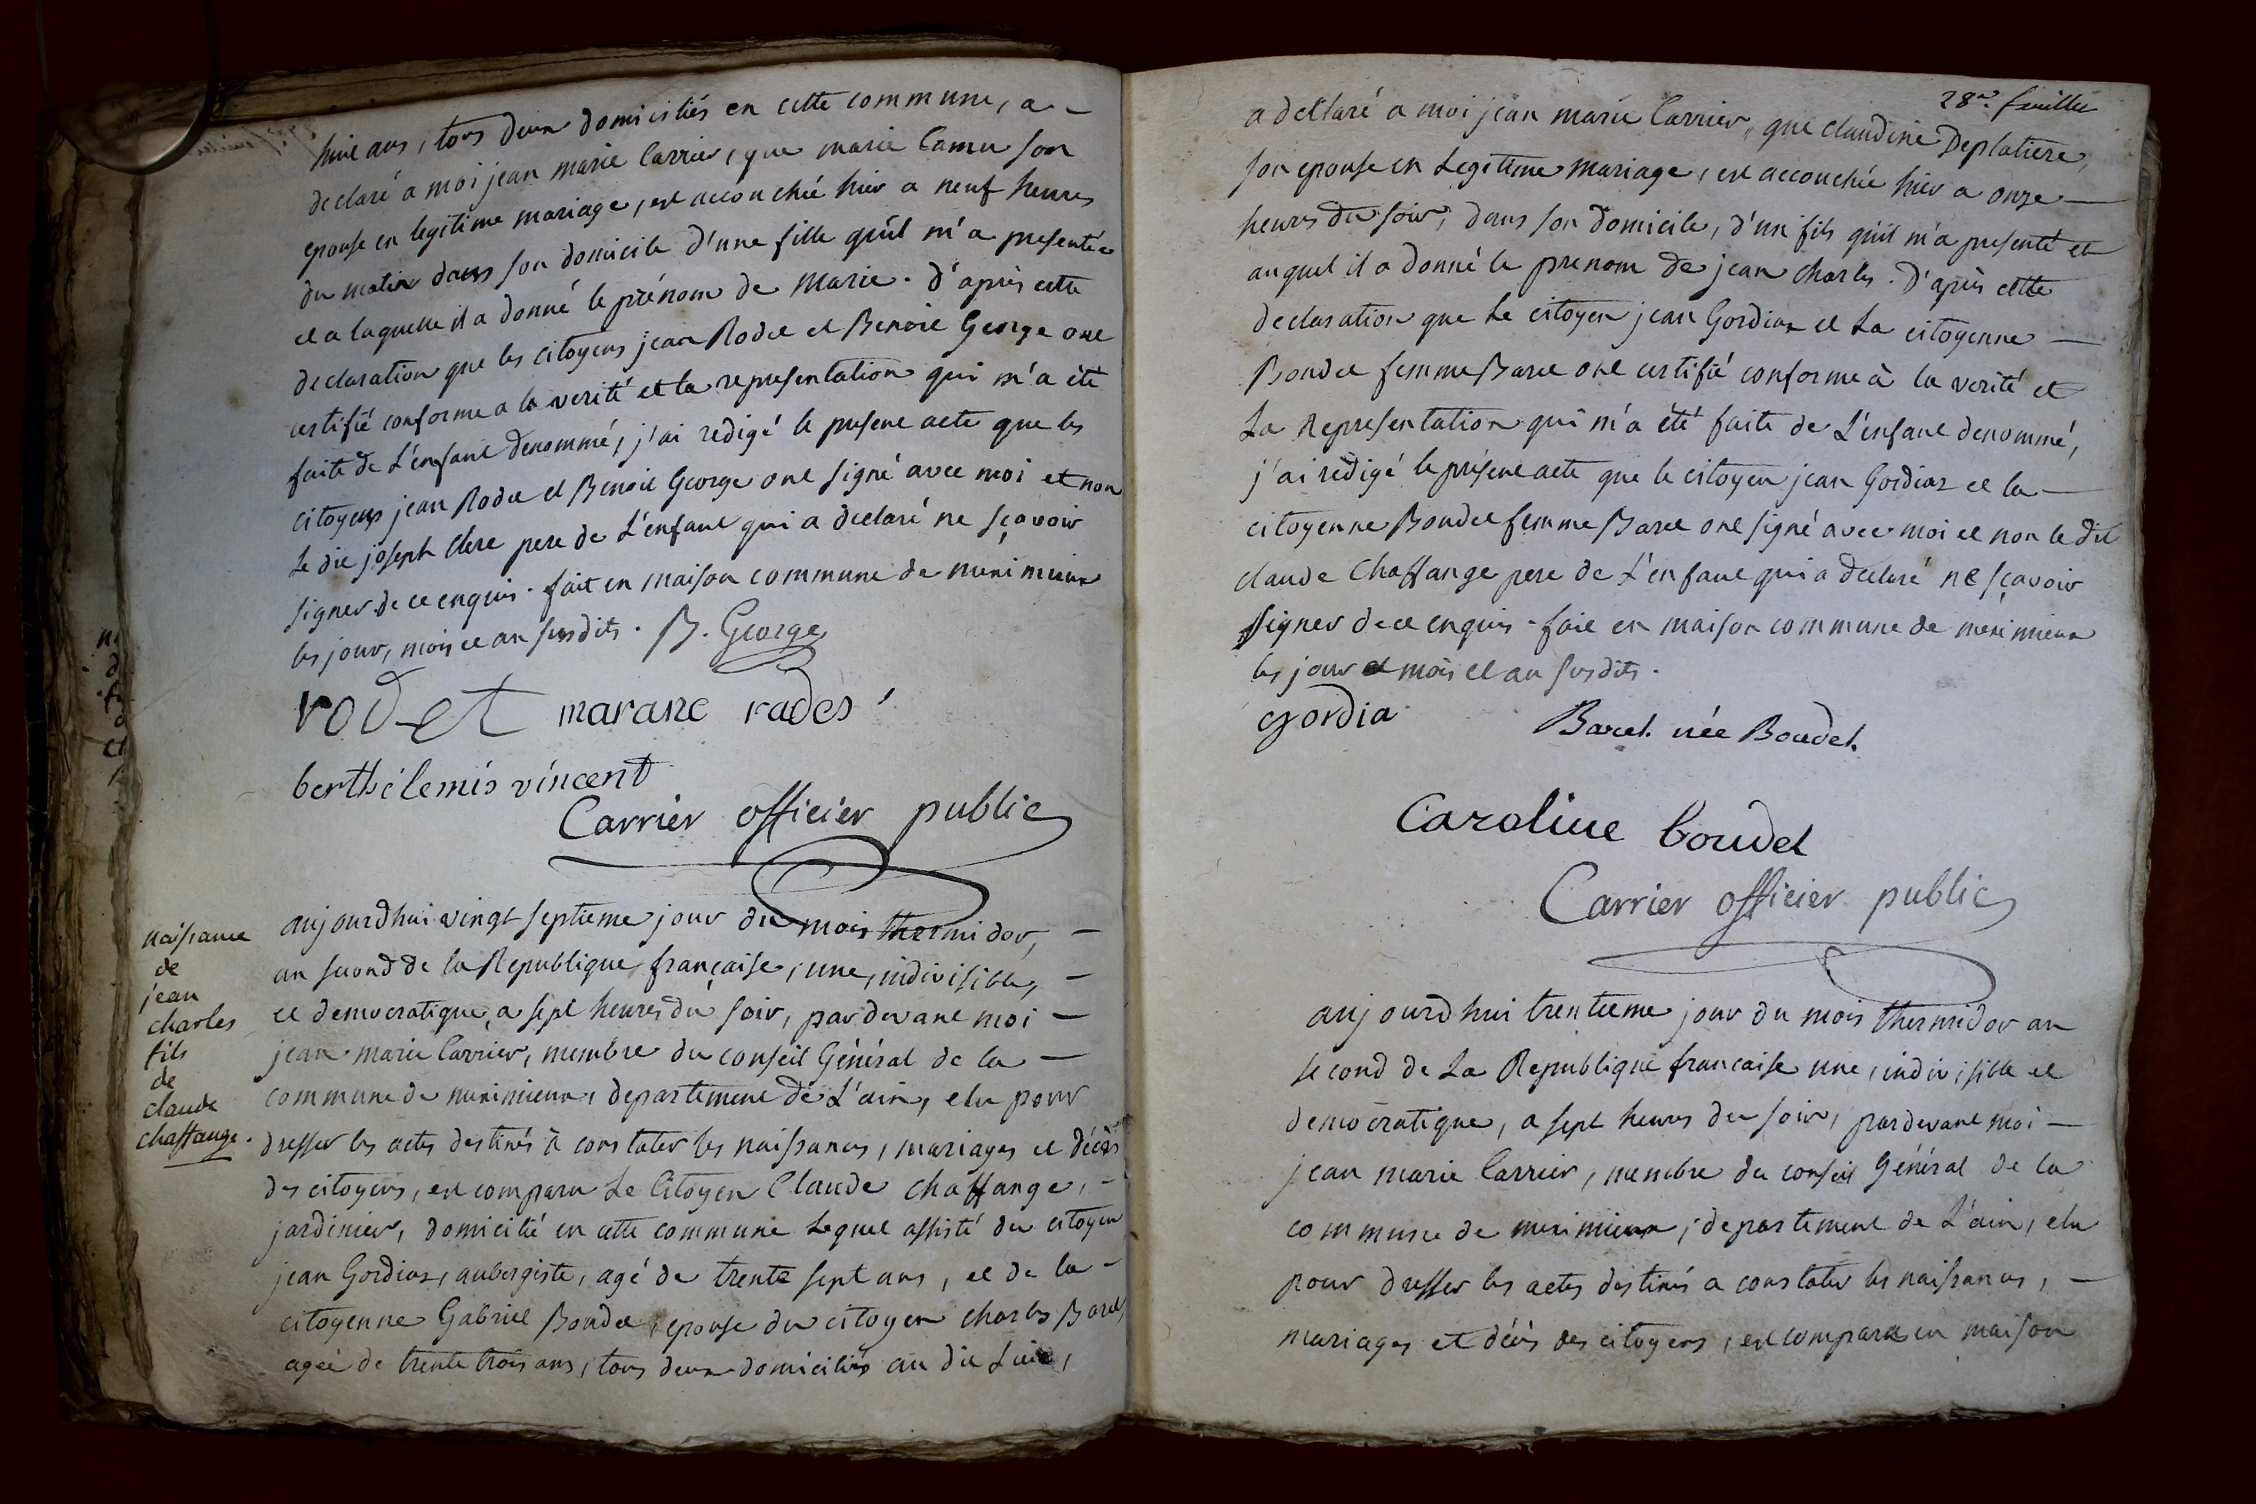 huit ans, tous deux domiciliés en cette commune, a -
declaré a moi jean marie Carrier, que marie Camu son
epouse en legitime mariage, est accouchée hier a neuf heures
du matin dans son domicile d'une fille qu'il m'a presentée
et a laquelle il a donné le prénom de Marie. d'après cette
declaration que les citoyens jean Rodet et Benoit George ont
certifié conforme a la verité et la representation qui m'a été
faite de L'enfant denommé, j'ai redigé le present acte que les
citoyens jean Rodet et Benoit George ont signé avec moi et non
Le dit joseph Clerc pere de L'enfant qui a declaré ne sçavoir
signer de ce enquis. fait en maison commune de meximieux
les jour, mois et an susdits. B. George
rodet marane rades
berthélemis vincent
Carrier officier public
naissance
de
jean
charles
fils
de
claude
chaffange.
aujourdhui vingt septieme jour du mois thermidor, -
an second de la Republique française, une, indivisible, -
et democratique, a sept heures du soir, pardevant moi -
jean marie Carrier, membre du conseil Général de la -
commune de meximieux, departement de L'ain, elu pour
dresser les actes destinés à constater les naissances, mariages et décès
des citoyens, est comparu Le Citoyen Claude chaffange, -
jardinier, domicilié en cette commune Lequel assisté du citoyen
jean Gordiat, aubergiste, agé de trente sept ans, et de la -
citoyenne Gabriel Boudet, epouse du citoyen charles Baret,
agée de trente trois ans, tous deux domiciliés au dit Lieu,
28me. feuillet
a declaré a moi jean marie Carrier, que claudine Deplatiere,
son epouse en Legitime mariage, est accouchée hier a onze -
heures du soir, dans son domicile, d'un fils qu'il m'a presenté et
auquel il a donné le prenom de jean charles. D'après cette
declaration que Le citoyen jean Gordiat et La citoyenne -
Boudet femme Baret ont certifié conforme à la verité et
La Representation qui m'a été faite de L'enfant denommé,
j'ai redigé le présent acte que le citoyen jean Gordiat et la -
citoyenne Boudet femme Baret ont signé avec moi et non le dit
claude Chaffange pere de L'enfant qui a declaré ne sçavoir
signer de ce enquis. fait en maison commune de meximieux
les jour et mois et an susdits.
gordia
Baret née Boudet.
Caroline boudet
Carrier officier public
aujourdhui trentieme jour du mois thermidor an
second de La Republique francaise une, indivisible et
democratique, a sept heures du soir, pardevant moi -
jean marie Carrier, membre du conseil Général de la
commune de meximieux, departement de L'ain, elu
pour dresser les actes destinés a constater les naissances, -
mariages et décès des citoyens, est comparu en maison